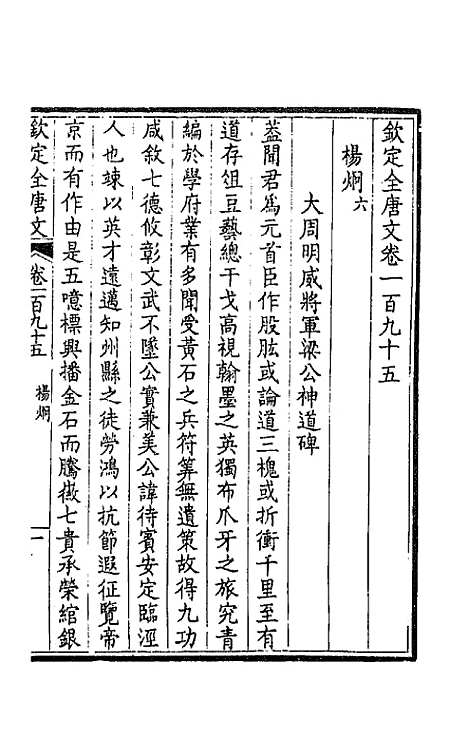 欽定全唐文卷一百九十五
楊炯六
大周明威將軍梁公神道碑
蓋聞君爲元首臣作股肱或論道三槐或折衝千里至有
道存俎豆藝總干戈高視翰墨之英獨布爪牙之旅究青
編於學府業有多聞受黃石之兵符筭無遺策故得九功
咸敘七德攸彰文武不墜公實兼美公諱待賓安定臨涇
人也竦以英才遠邁知州縣之徒勞鴻以抗節遐征覽帝
京而有作由是五噫標興播金石而騰徽七貴承榮綰銀
欽定全唐文
卷一百九十五
楊炯
一